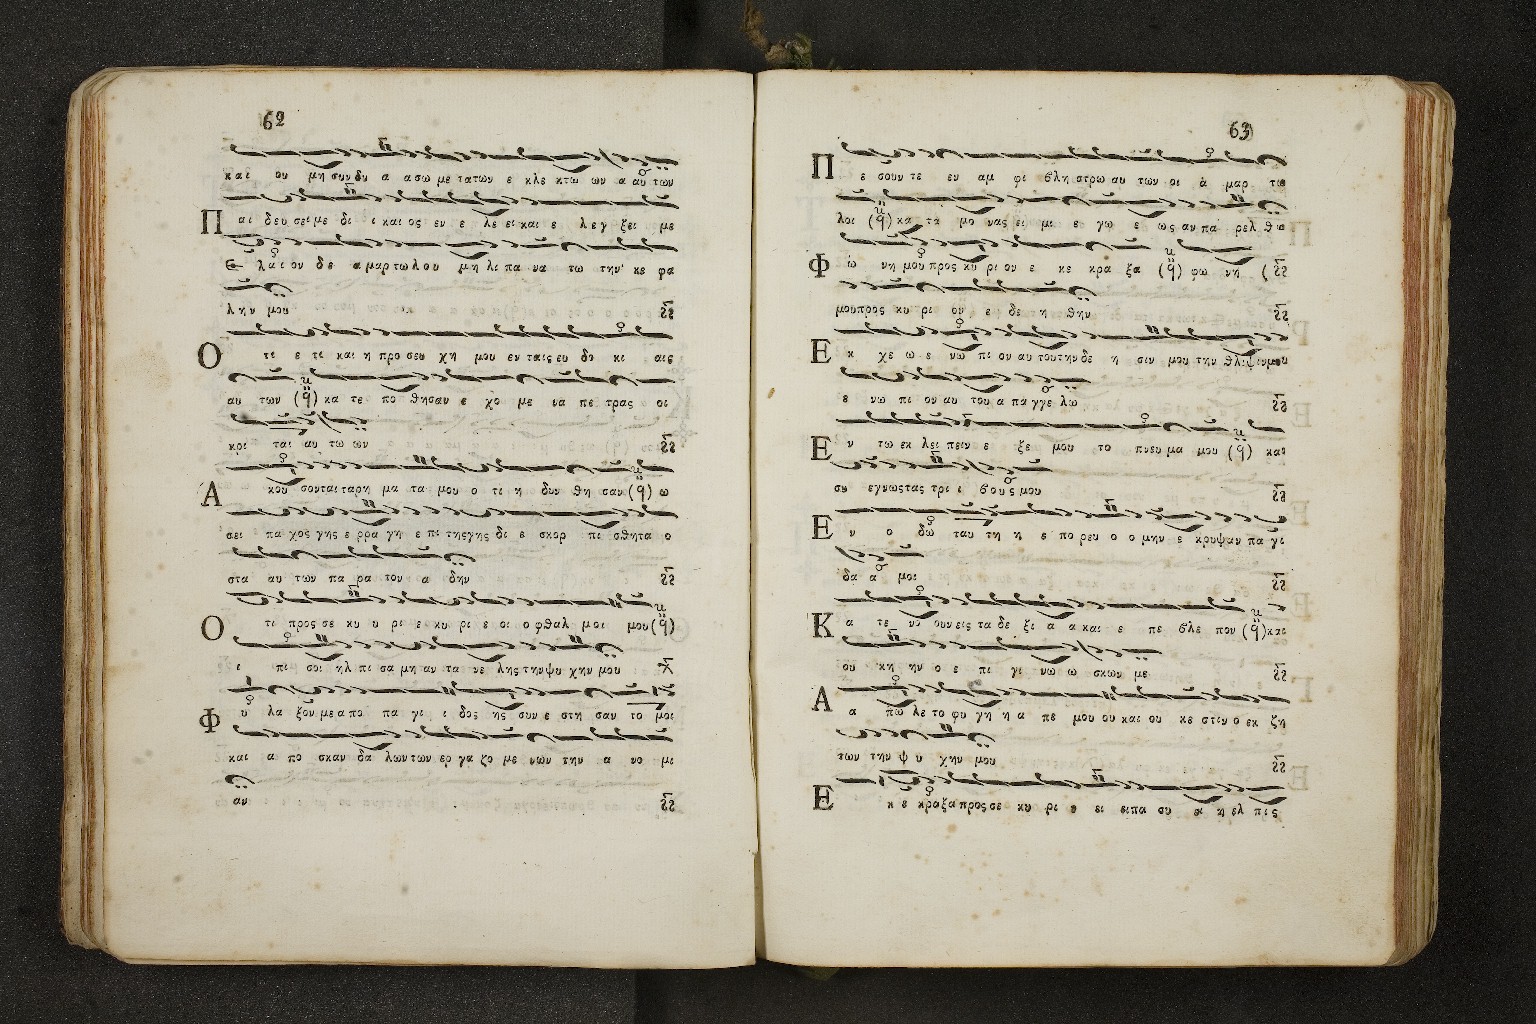 62
και ου μη συν δυ α α σω με τα των ε κλε κτω ων α αυ των
Π αι δευ σει με δι ι και ος εν ε λε ει και ε λεγ ξει με
Ε λαι ον δε α μαρ τω λου μη λι πα να τω την κε φα
λην μου
Ο τι ε τι και η προ σευ χη μου εν ταις ευ δο κι αις
αυ των (q̈) κα τε πο θησαν ε χο με να πε τρας οι
κοι ται αυ τω ων
Α κου σονται τα ρη μα τα μου ο τι η δυν θη σαν (q̈) ω
σει πα χος γης ε ρρα γη ε πι της γης δι ε σκορ πι σθη τα ο
στα αυ των πα ρα τον α δην
Ο τι προς σε κυ υ ρι ε κυ ρι ε οι ο φθαλ μοι μου (q̈)
ι πι σοι ηλ πι σα μη αν τα νε λης την ψυ χην μου
Φ υ λα ξον με α πο πα γι ι δος ης συν ε στη σαν το μοι
και α πο σκαν δα λων των ερ γα ζο με νων την α νο μι
αν
63
Π ε σουν τε εν αμ φι βλη στρω αυ των οι ἁ μαρ τω
λοι (q̈) κα τα μο νας ει μι ε γω ε ως αν πα ρελ θω
Φ ω νη μου προς κυ ρι ον ε κε κρα ξα (q̈) φω νη
μου προς κυ ρι ον ε δε η θην
Ε κ χε ω ε νω πι ον αυ του την δε η σιν μου την θλι ψιν μου
ε νω πι ον αυ του α πα γγε λω
Ε ν τω εκ λει πειν ε ξε μου το πνευ μα μου (q̈) και
συ εγνως τας τρι ι βους μου
Ε ν ο δω ταυ τη η ε πο ρευ ο ο μην ε κρυψαν πα γι
δα α μοι
Κ α τε νο ουν εις τα δε ξι α α και ε πε βλε πον (q̈) και
ου κη ην ο ε πι γι νω ω σκων με
Α α πω λε το φυ γη η α πε μου ου και ου κε στιν ο εκ ζη
των την ψ υ χην μου
Ε κ ε κραξα προς σε κυ ρι ε ει ειπα συ ει η ελ πις